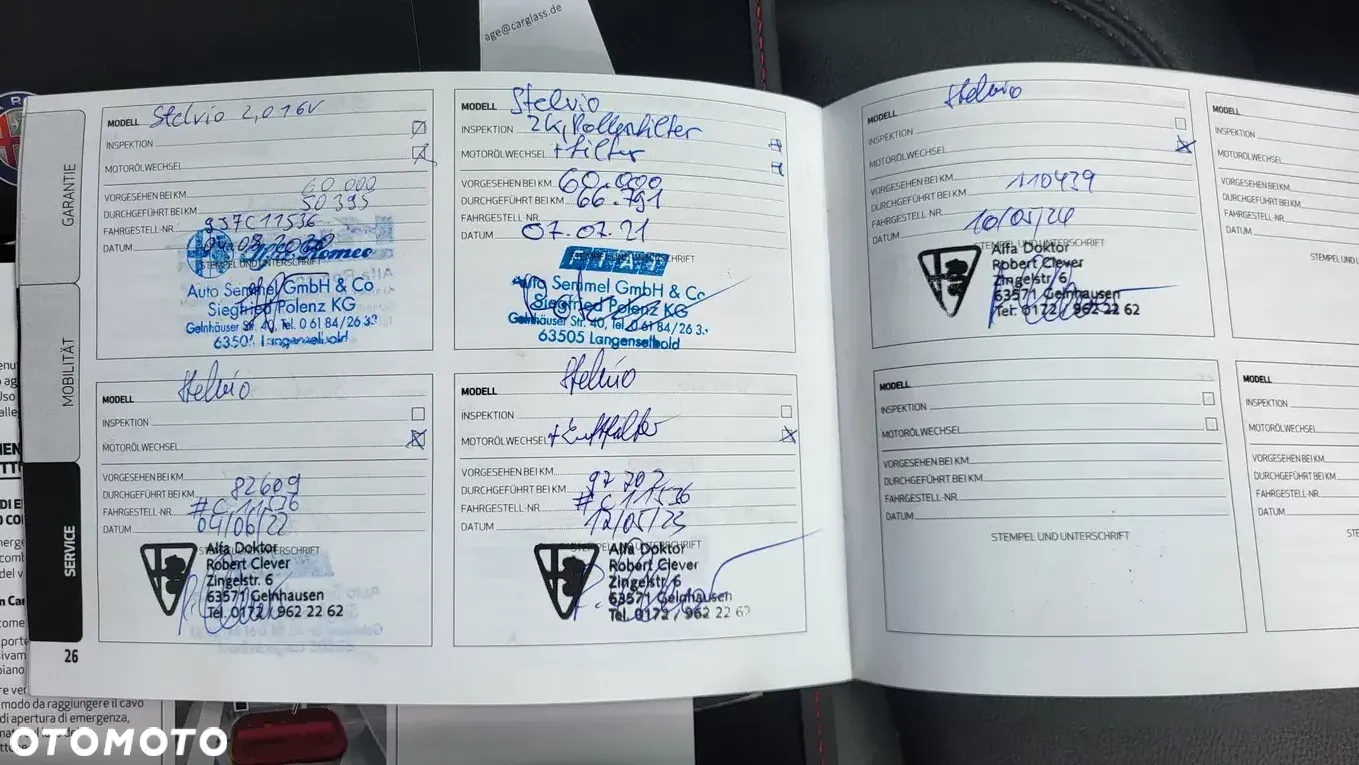 age@carglass.de
GARANTIE
MOBILITÄT
SERVICE
26
MODELL Stelvio 2,0 16V
INSPEKTION
MOTORÖLWECHSEL
VORGESEHEN BEI KM 60 000
DURCHGEFÜHRT BEI KM 50 395
FAHRGESTELL-NR. 937C11536
DATUM
STEMPEL UND UNTERSCHRIFT
Alfa Romeo
Auto Semmel GmbH & Co
Siegfried Polenz KG
Gelnhäuser Str. 40, Tel. 0 61 84/26 33
63505 Langenselbold
MODELL Stelvio
INSPEKTION 2K, Pollenfilter
MOTORÖLWECHSEL + Filter
VORGESEHEN BEI KM 60.000
DURCHGEFÜHRT BEI KM 66.791
FAHRGESTELL-NR.
DATUM 07.07.21
STEMPEL UND UNTERSCHRIFT
FIAT
Auto Semmel GmbH & Co
Siegfried Polenz KG
Gelnhäuser Str. 40, Tel. 0 61 84/26 3
63505 Langenselbold
MODELL Stelvio
INSPEKTION
MOTORÖLWECHSEL
VORGESEHEN BEI KM
DURCHGEFÜHRT BEI KM 110439
FAHRGESTELL-NR.
DATUM 10/05/24
STEMPEL UND UNTERSCHRIFT
Alfa Doktor
Robert Clever
Zingelstr. 6
63571 Gelnhausen
Tel. 0172 / 962 22 62
MODELL
INSPEKTION
MOTORÖLWECHSEL
VORGESEHEN BEI KM
DURCHGEFÜHRT BEI KM
FAHRGESTELL-NR.
DATUM
STEMPEL UN
MODELL Stelvio
INSPEKTION
MOTORÖLWECHSEL
VORGESEHEN BEI KM
DURCHGEFÜHRT BEI KM 82609
FAHRGESTELL-NR. #C11536
DATUM 04/06/22
STEMPEL UND UNTERSCHRIFT
Alfa Doktor
Robert Clever
Zingelstr. 6
63571 Gelnhausen
Tel. 0172 / 962 22 62
MODELL Stelvio
INSPEKTION
MOTORÖLWECHSEL + Luftfilter
VORGESEHEN BEI KM
DURCHGEFÜHRT BEI KM 97 707
FAHRGESTELL-NR. #C11536
DATUM 12/05/23
STEMPEL UND UNTERSCHRIFT
Alfa Doktor
Robert Clever
Zingelstr. 6
63571 Gelnhausen
Tel. 0172 / 962 22 62
MODELL
INSPEKTION
MOTORÖLWECHSEL
VORGESEHEN BEI KM
DURCHGEFÜHRT BEI KM
FAHRGESTELL-NR.
DATUM
STEMPEL UND UNTERSCHRIFT
MODELL
INSPEKTION
MOTORÖLWECHSEL
VORGESEHEN BEI KM
DURCHGEFÜHRT BEI KM
FAHRGESTELL-NR.
DATUM
modo da raggiungere il cavo
di apertura di emergenza,
OTOMOTO